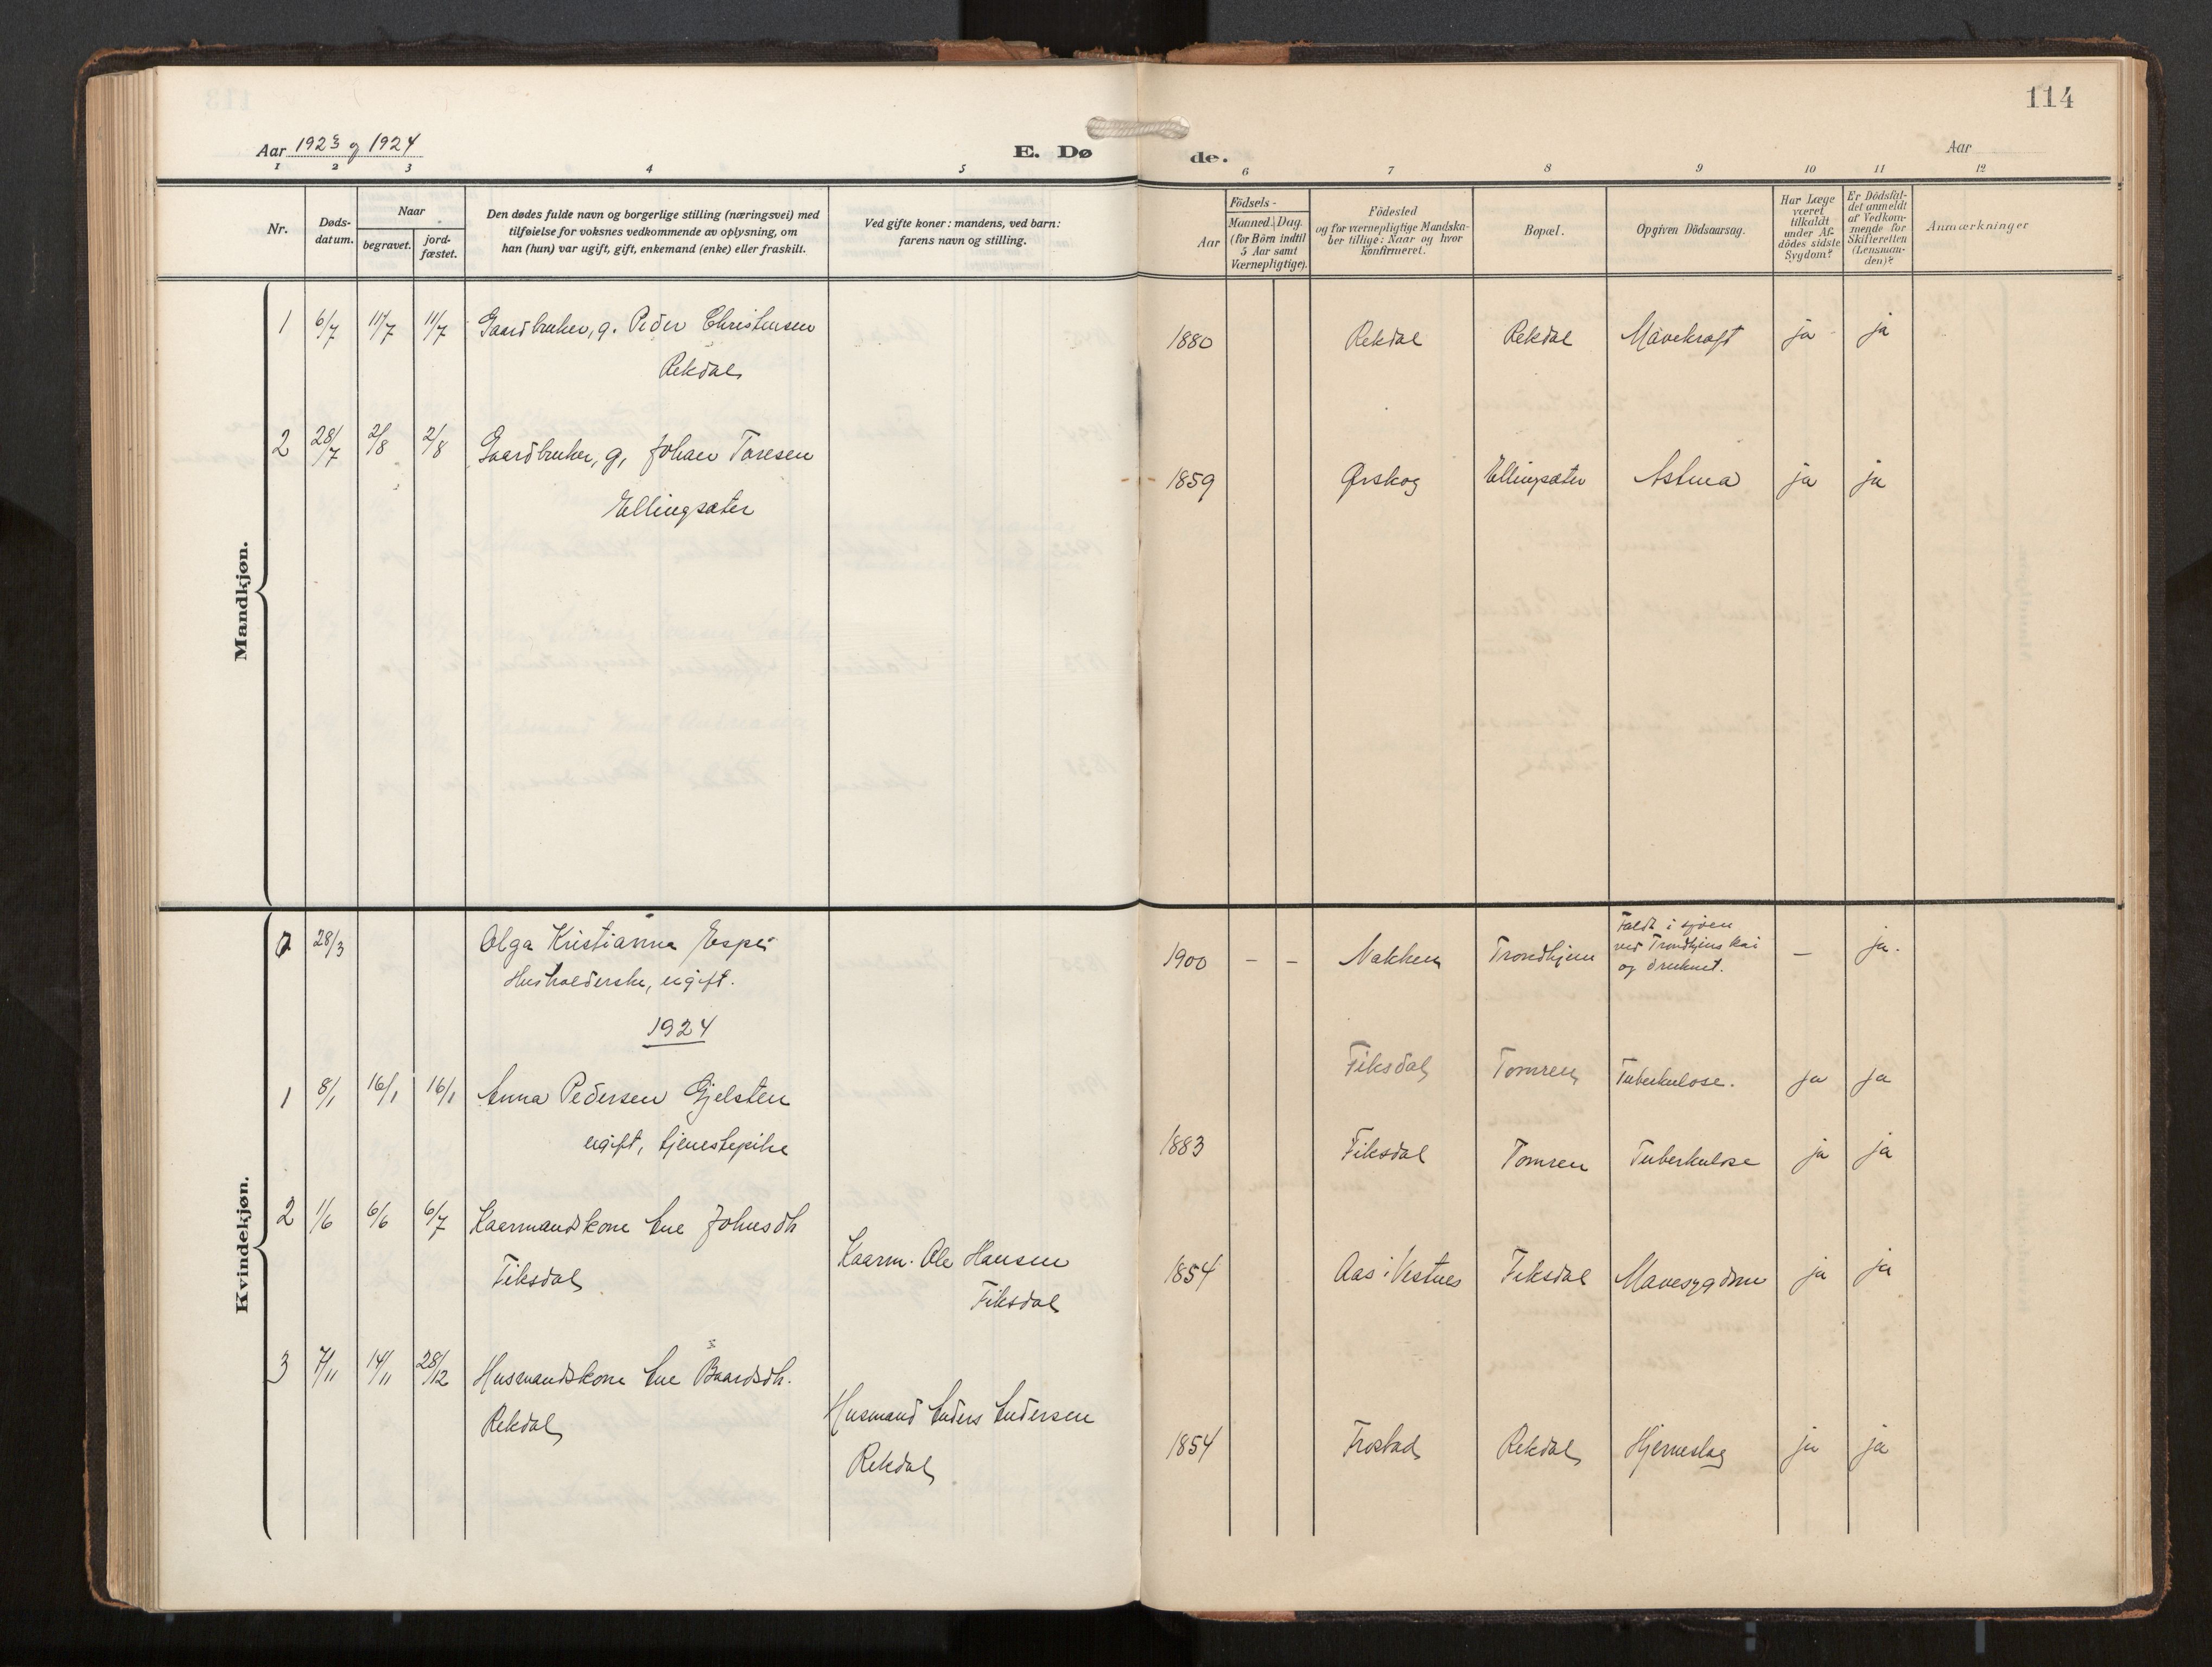 114
Aar 1923 og 1924
E. Døde.
Aar
1 2 3 4 5 6 7 8 9 10 11 12
Nr.
Døds-
datum.
Naar
begravet.
jord-
fæstet.
Den dødes fulde navn og borgerlige stilling (næringsvei) med
tilføielse for voksnes vedkommende av oplysning, om
han (hun) var ugift, gift, enkemand (enke) eller fraskilt.
Ved gifte koner: mandens, ved barn:
farens navn og stilling.
Fødsels-
Aar
Maaned. Dag.
(for Børn indtil
5 Aar samt
Værnepligtige).
Fødested
og for værnepligtige Mandska-
ber tillige: Naar og hvor
konfirmeret.
Bopæl.
Opgiven Dødsaarsag.
Har Læge
været
tilkaldt
under Af-
dødes sidste
Sygdom?
Er Dødsfal-
det anmeldt
af Vedkom-
mende for
Skifteretten
(Lensman-
den)?
Anmærkninger
Mandkjøn.
1 6/7 11/7 11/7 Gaardbruker, g. Peder Christensen
Rekdal
1880 Rekdal Rekdal Mavekraft ja ja
2 28/7 2/8 2/8 Gaardbruker, g, Johan Taresen
Ellingsæter
1859 Ørskog Ellingsæter Astma ja ja
Kvindekjøn.
28/3 Olga Kristianna
Husholderske, ugift.
1900 – – Nakken Trondhjem
Faldt i sjøen
ved Trondhjems kai
og druknet.
– ja.
1924
1 8/1 16/1 16/1 Anna Pedersen Gjelsten
ugift, tjenestepike
Fiksdal Tomren Tuberkulose. ja ja
1883 Fiksdal Tomren Tuberkulose ja ja
2 1/6 6/6 6/7 Kaarmandskone Ane Johnsdh
Fiksdal
Kaarm. Ole Hansen
Fiksdal
1854 Aas i Vestnes Fiksdal Mavesygdom ja ja
3 7/11 14/11 28/12 Husmandskone Ane Baardsdh.
Rekdal
Husmand Anders Andersen
Rekdal
1854 Frostad Rekdal Hjerneslag ja ja